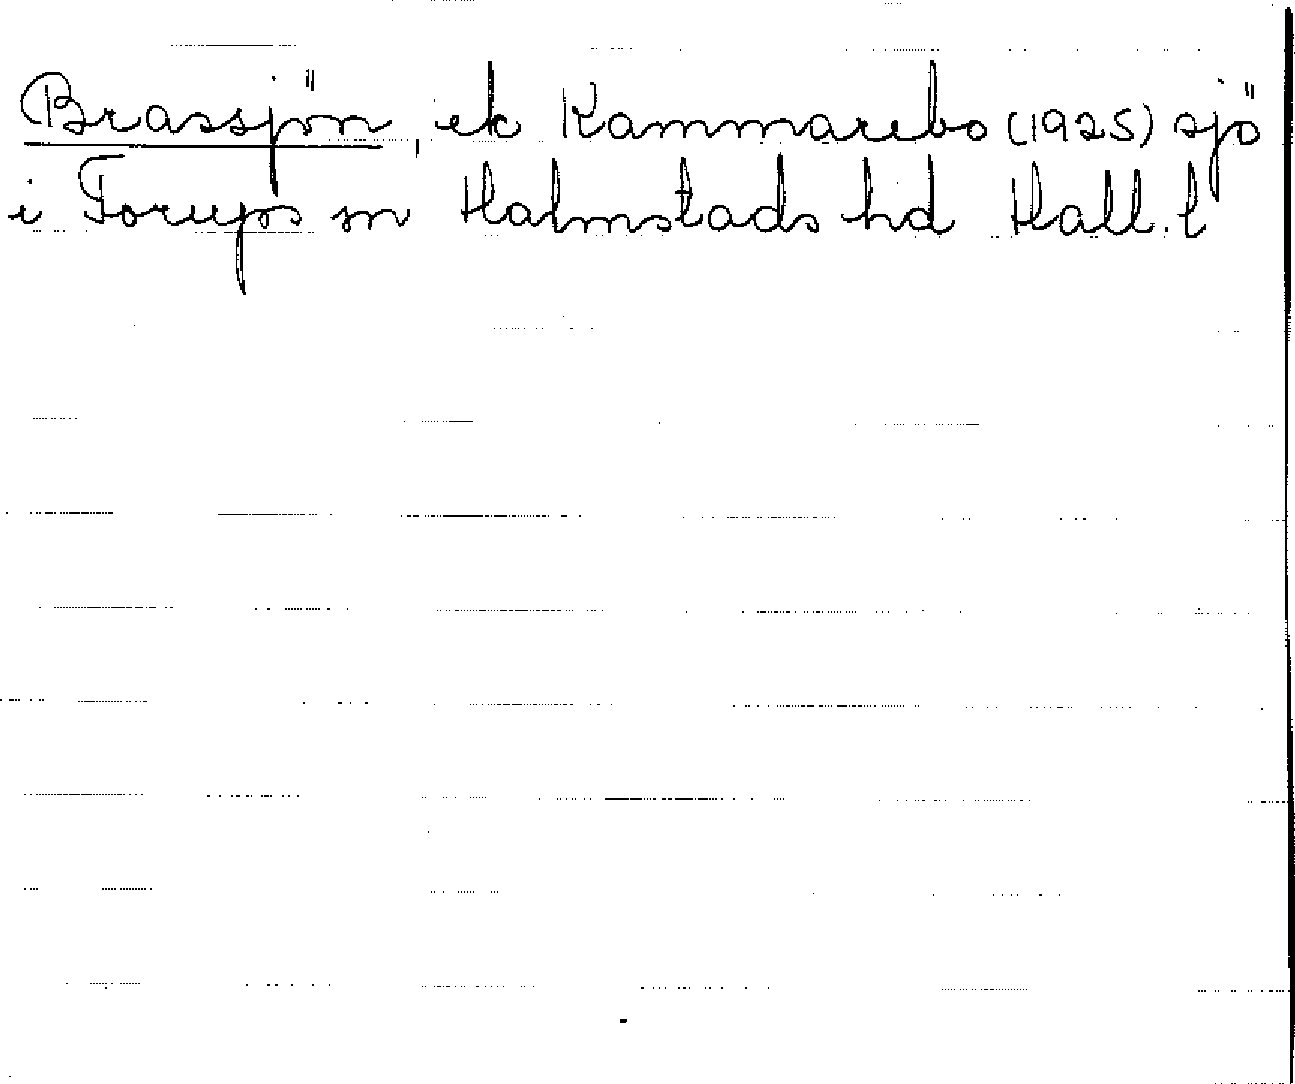 Brassjön, ek Kammarebo (1925) sjö
i Torups sn Halmstads hd Hall.l